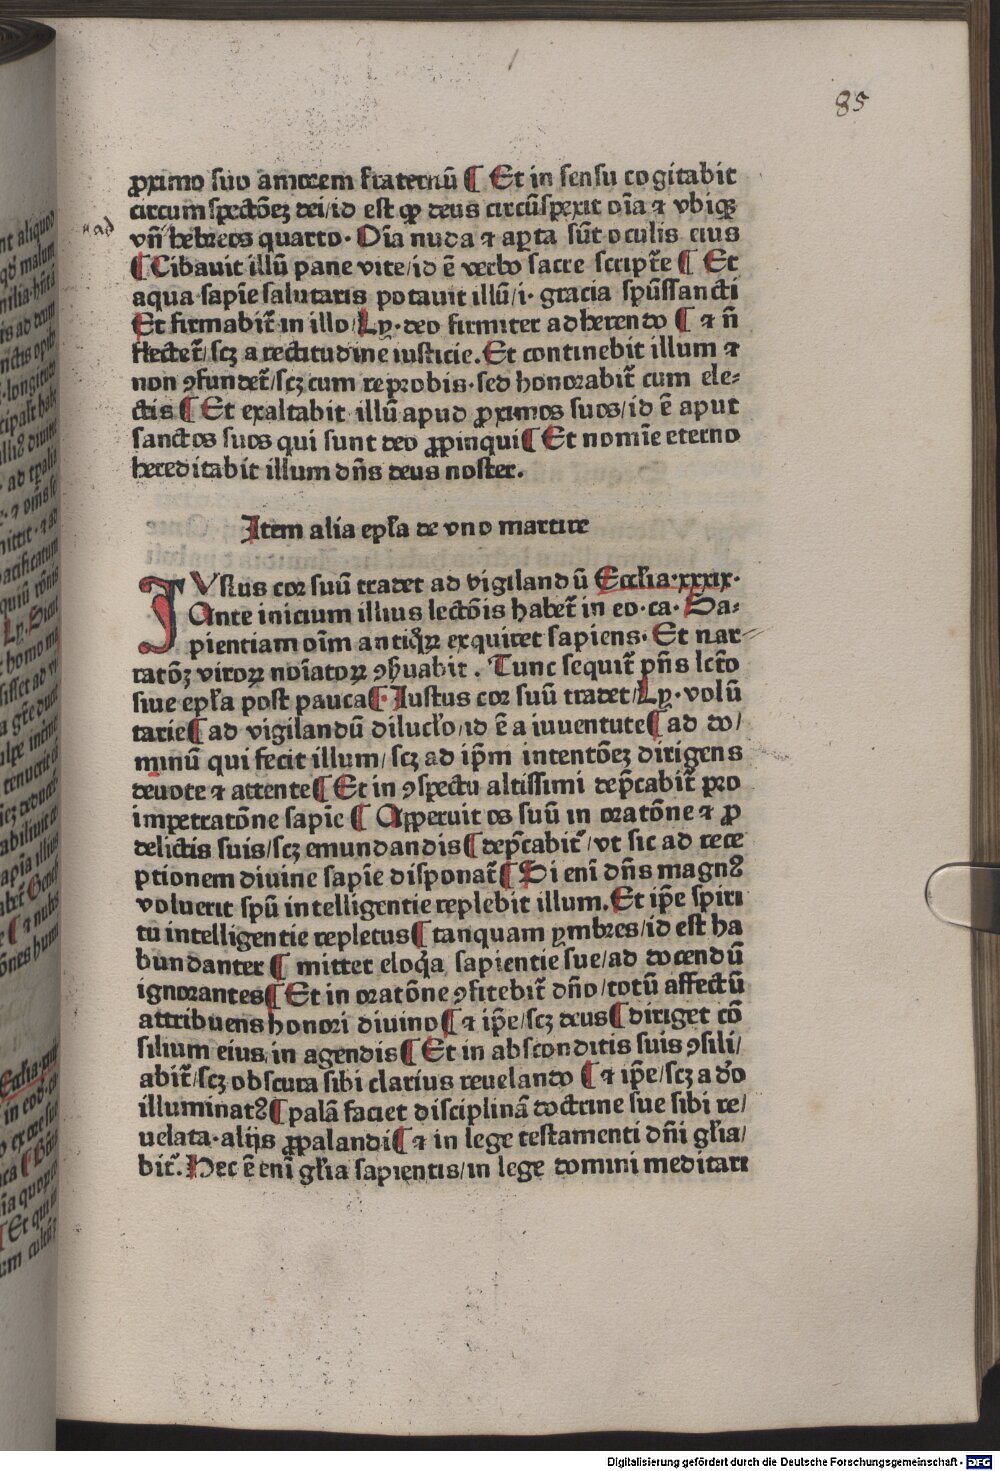 85
ꝓximo suo amorem fraternū ¶ Et in sensu cogitabit
circumspectōeꝫ dei/id est ꝙ deus circūspexit oīa ⁊ vbiqꝫ
ad
vñ hebreos quarto· Oīa nuda ⁊ aꝑta sūt oculis eius
¶ Cibauit illū pane vite/id ē verbo sacre script̄e ¶ Et
aqua sapīe salutaris potauit illū/i· gracia spūssancti
Et firmabit̄ in illo/Ly·deo firmiter adherendo ¶ ⁊ n̄
flectet̄/scꝫ a rectitudine iusticie. Et continebit illum ⁊
non ꝯfundet̄/scꝫ cum reprobis· sed honorabit̄ cum ele⸗
ctis ¶ Et exaltabit illū apud ꝓximos suos/id ē aput
sanctos suos qui sunt deo ꝓpinqui ¶ Et nomīe eterno
hereditabit illum dn̄s deus noster.
Item alia epl̄a de vno martire
IVstus cor suū tradet ad vigilandū Eccl̄ia·xxxix·
Ante inicium illius lectōis habet̄ in eo·ca· Sa⸗
pientiam oīm antiq̄ꝝ exquiret sapiens· Et nar
ratōꝫ viroꝝ noīatoꝝ ꝯẜuabit. Tunc sequit̄ pn̄s lctō
siue epl̄a post pauca ¶ Iustus cor suū tradet/Ly· volū
tarie ¶ ad vigilandū dilucl̄o/id ē a iuuentute ¶ ad do/
minū qui fecit illum/scꝫ ad ip̄m intentōeꝫ dirigens
deuote ⁊ attente ¶ Et in ꝯspectu altissimi dep̄cabit̄ pro
impetratōne sapīe ¶ Apperuit os suū in oratōne ⁊ ꝓ
delictis suis/scꝫ emundandis ¶ dep̄cabit̄/vt sic ad rece
ptionem diuine sapīe disponat̄ ¶ Si enī dn̄s magnꝰ
voluerit spū intelligentie replebit illum. Et ip̄e spiri
tu intelligentie repletus ¶ tanquam ymbres/id est ha
bundanter ¶ mittet eloq̄a sapientie sue/ad docendū
ignorantes ¶ Et in oratōne ꝯfitebit̄ dn̄o/totū affectū
attribuens honori diuino ¶ ⁊ ip̄e/scꝫ deus ¶ diriget cō
silium eius in agendis ¶ Et in absconditis suis ꝯsili/
abit̄/scꝫ obscura sibi clarius reuelando ¶ ⁊ ip̄e/scꝫ a d̄o
illuminatꝰ ¶ palā faciet disciplinā doctrine sue sibi re/
uelata· alijs ꝓpalandi ¶ ⁊ in lege testamenti dn̄i gl̄ia/
bit̄. Hec ē enī gl̄ia sapientis/in lege domini meditari
Digitalisierung gefördert durch die Deutsche Forschungsgemeinschaft - DFG